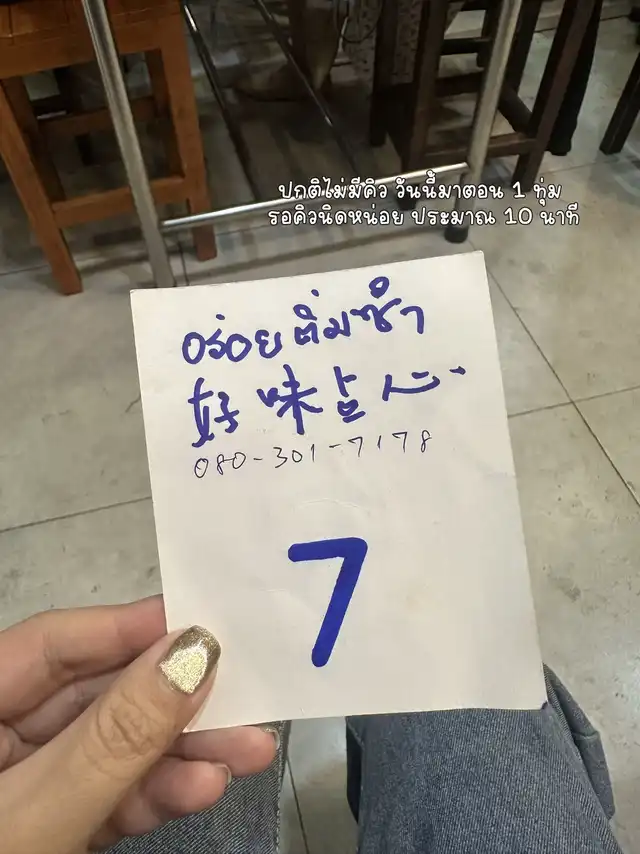 ปกติไม่มีคิว วันนี้มาตอน 1 ทุ่ม
รอคิวนิดหน่อย ประมาณ 10 นาที
อร่อยติ่มซำ
好味占心
080-301-7178
7